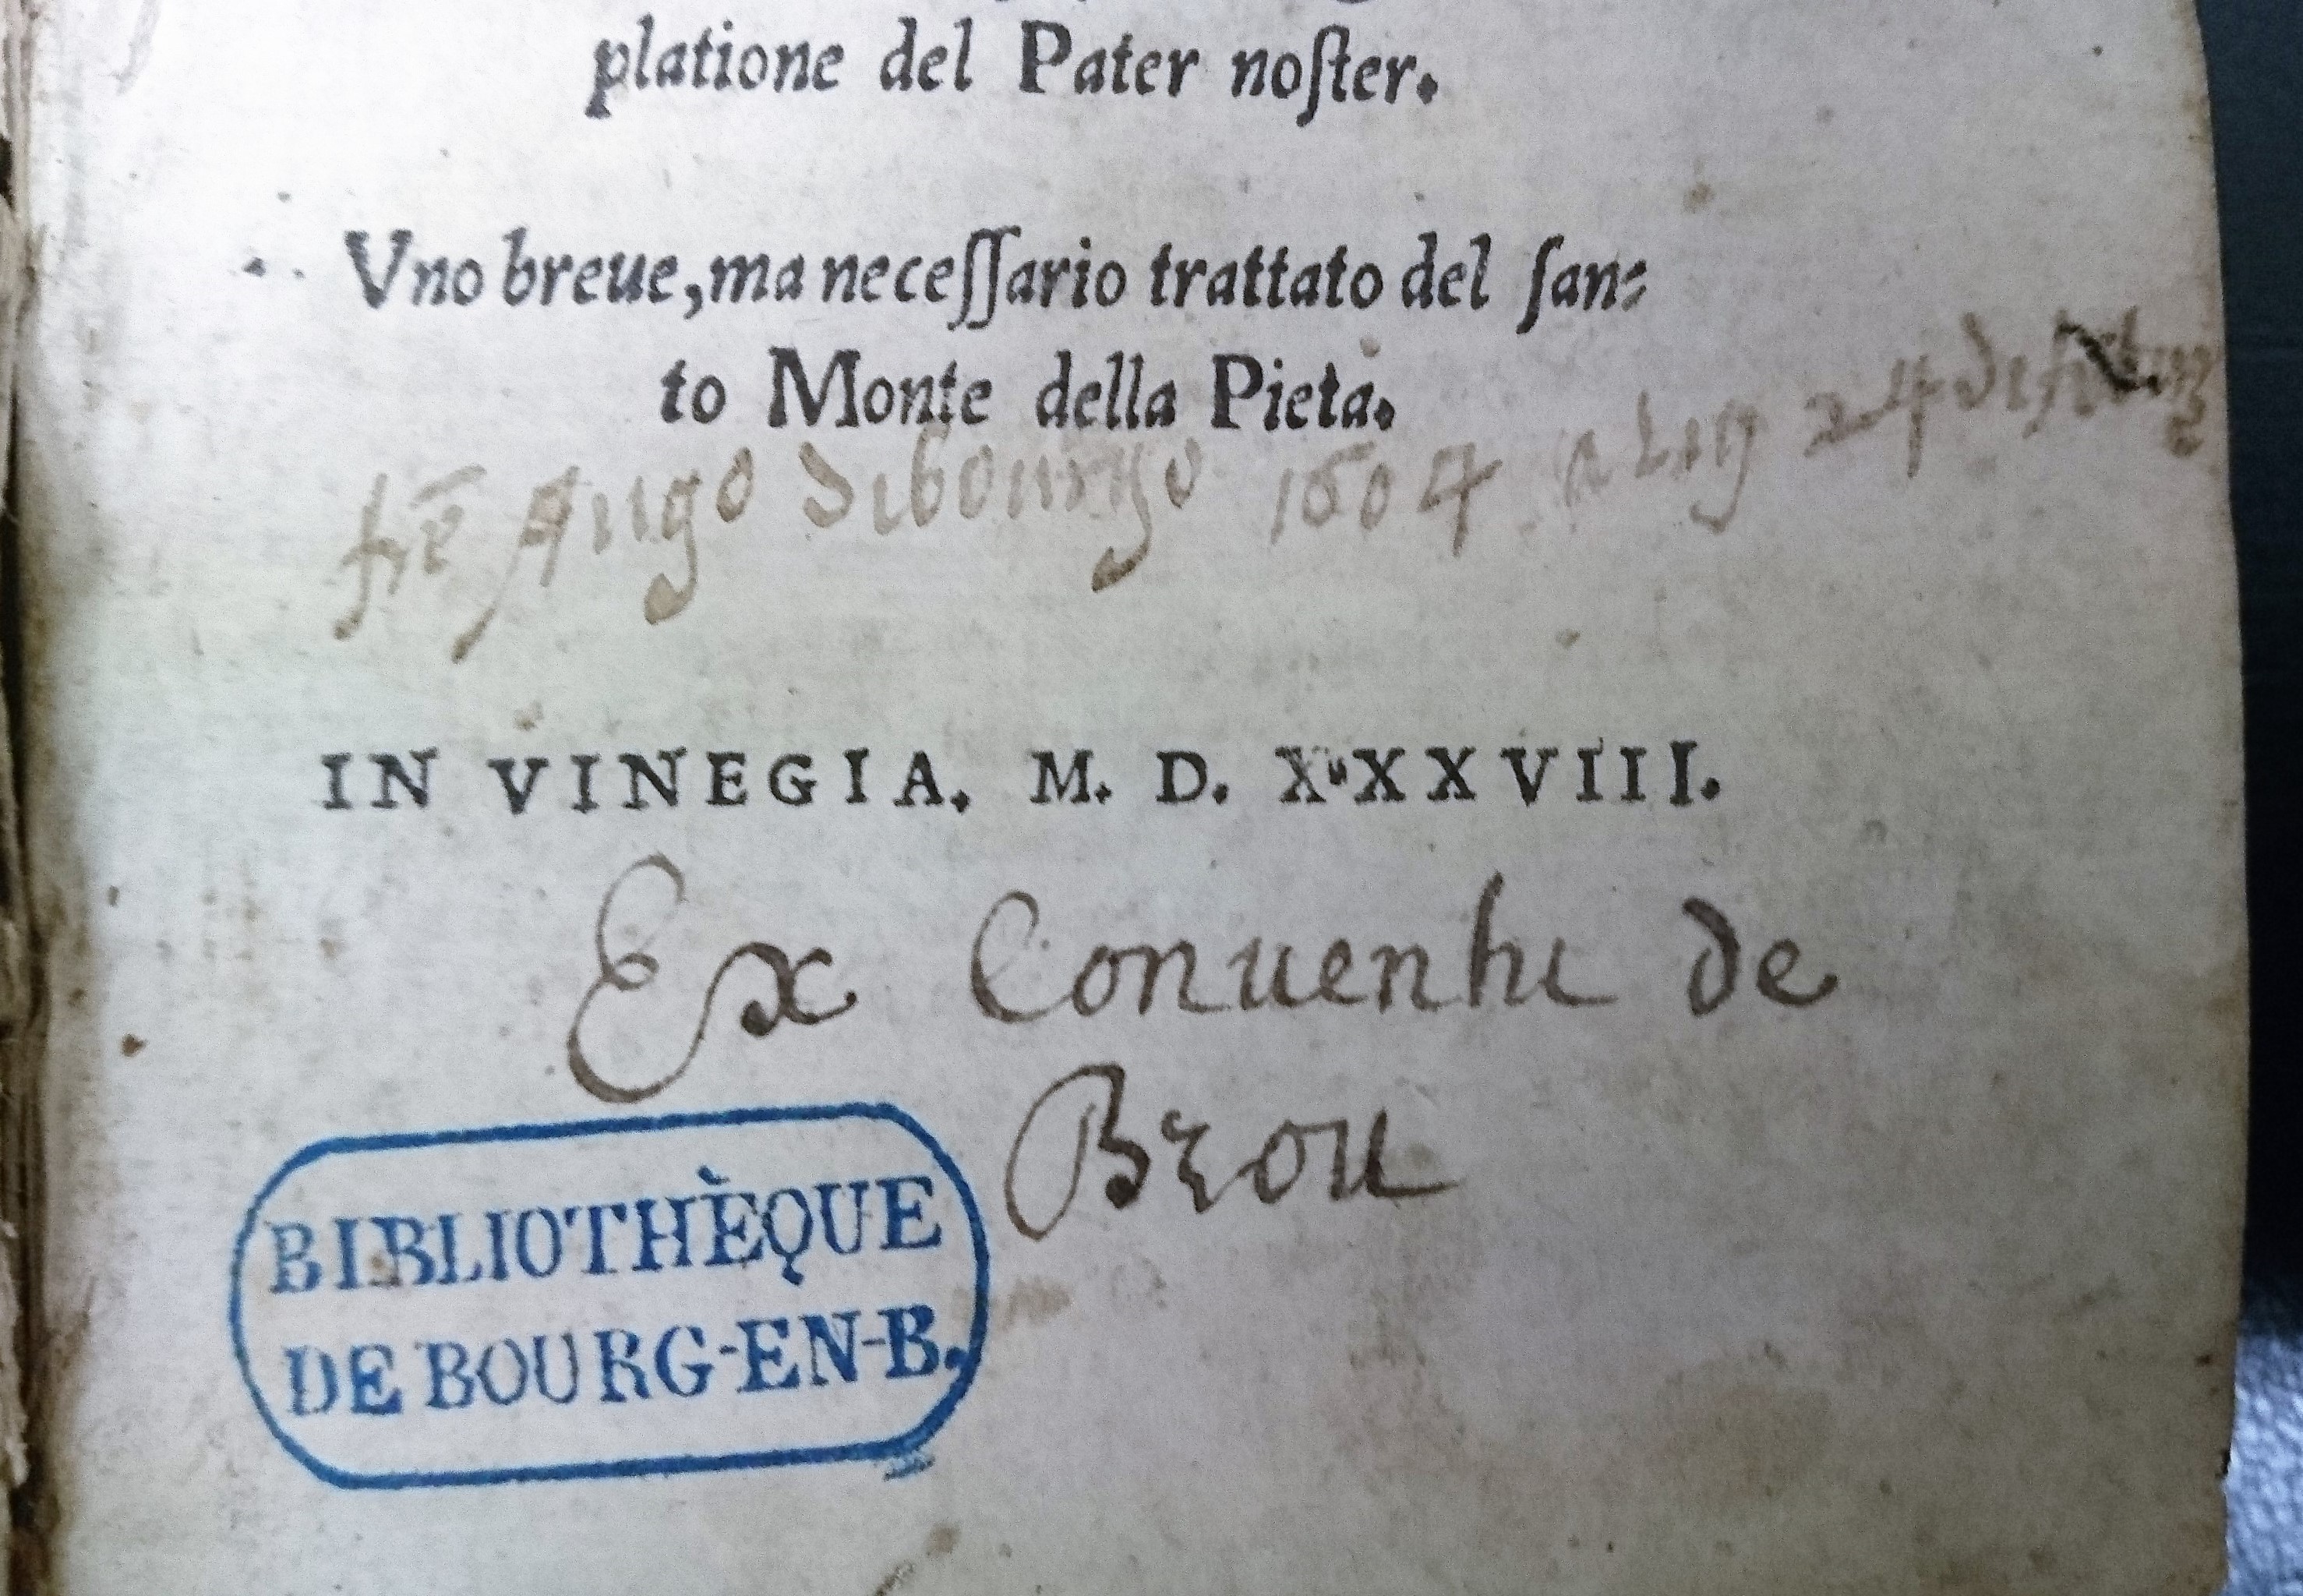 platione del Pater noſter.
Vno breue, ma neceſſario trattato del ſan⸗
to Monte della Pieta.
1604 24
IN VINEGIA. M. D. XXXVIII.
Ex Conuentu de
Brou
BIBLIOTHÈQUE
DE BOURG-EN-B.